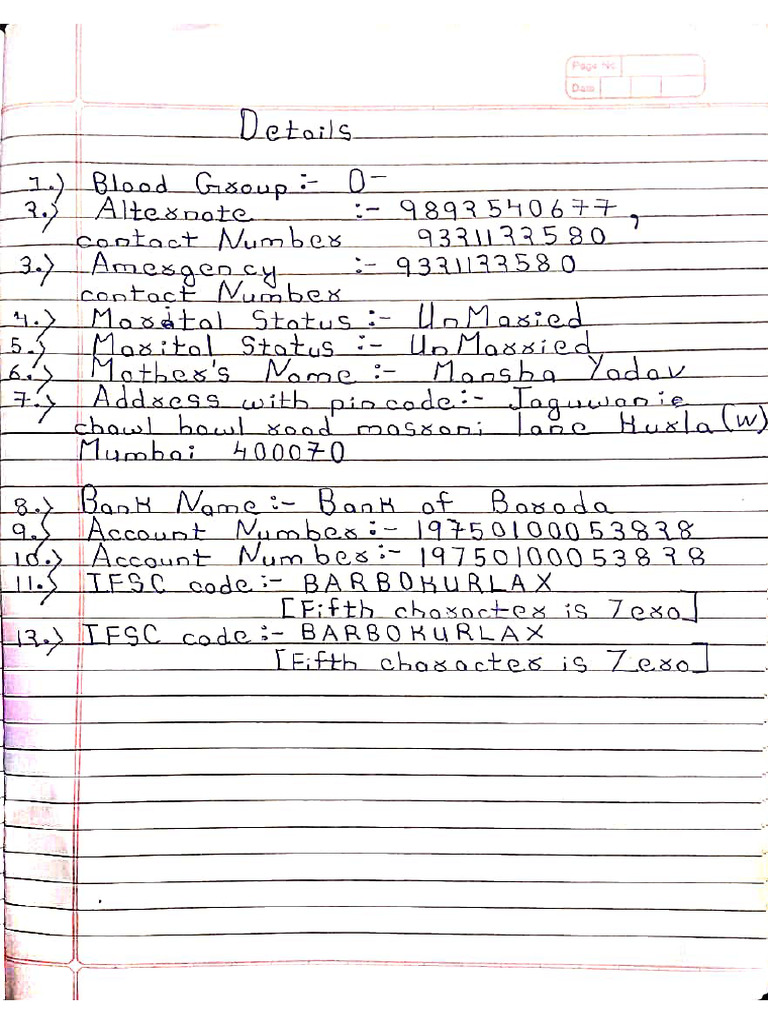 Page No.
Date
Details
1.) Blood Group :- O-
2.) Alternate :- 9892540677,
contact Number 9321122580
3.) Amergency :- 9321122580
contact Number
4.) Marital Status :- UnMaried
5.) Marital Status :- UnMarried
6.) Mother's Name :- Mansha Yadav
7.) Address with pincode :- Jaguwanie
chawl hawl road masrani lane Kurla (W)
Mumbai 400070
8.) Bank Name :- Bank of Baroda
9.) Account Number :- 19750100053828
10.) Account Number :- 19750100053828
11.) IFSC code :- BARB0KURLAX
[Fifth character is Zero]
12.) IFSC code :- BARB0KURLAX
[Fifth character is Zero]